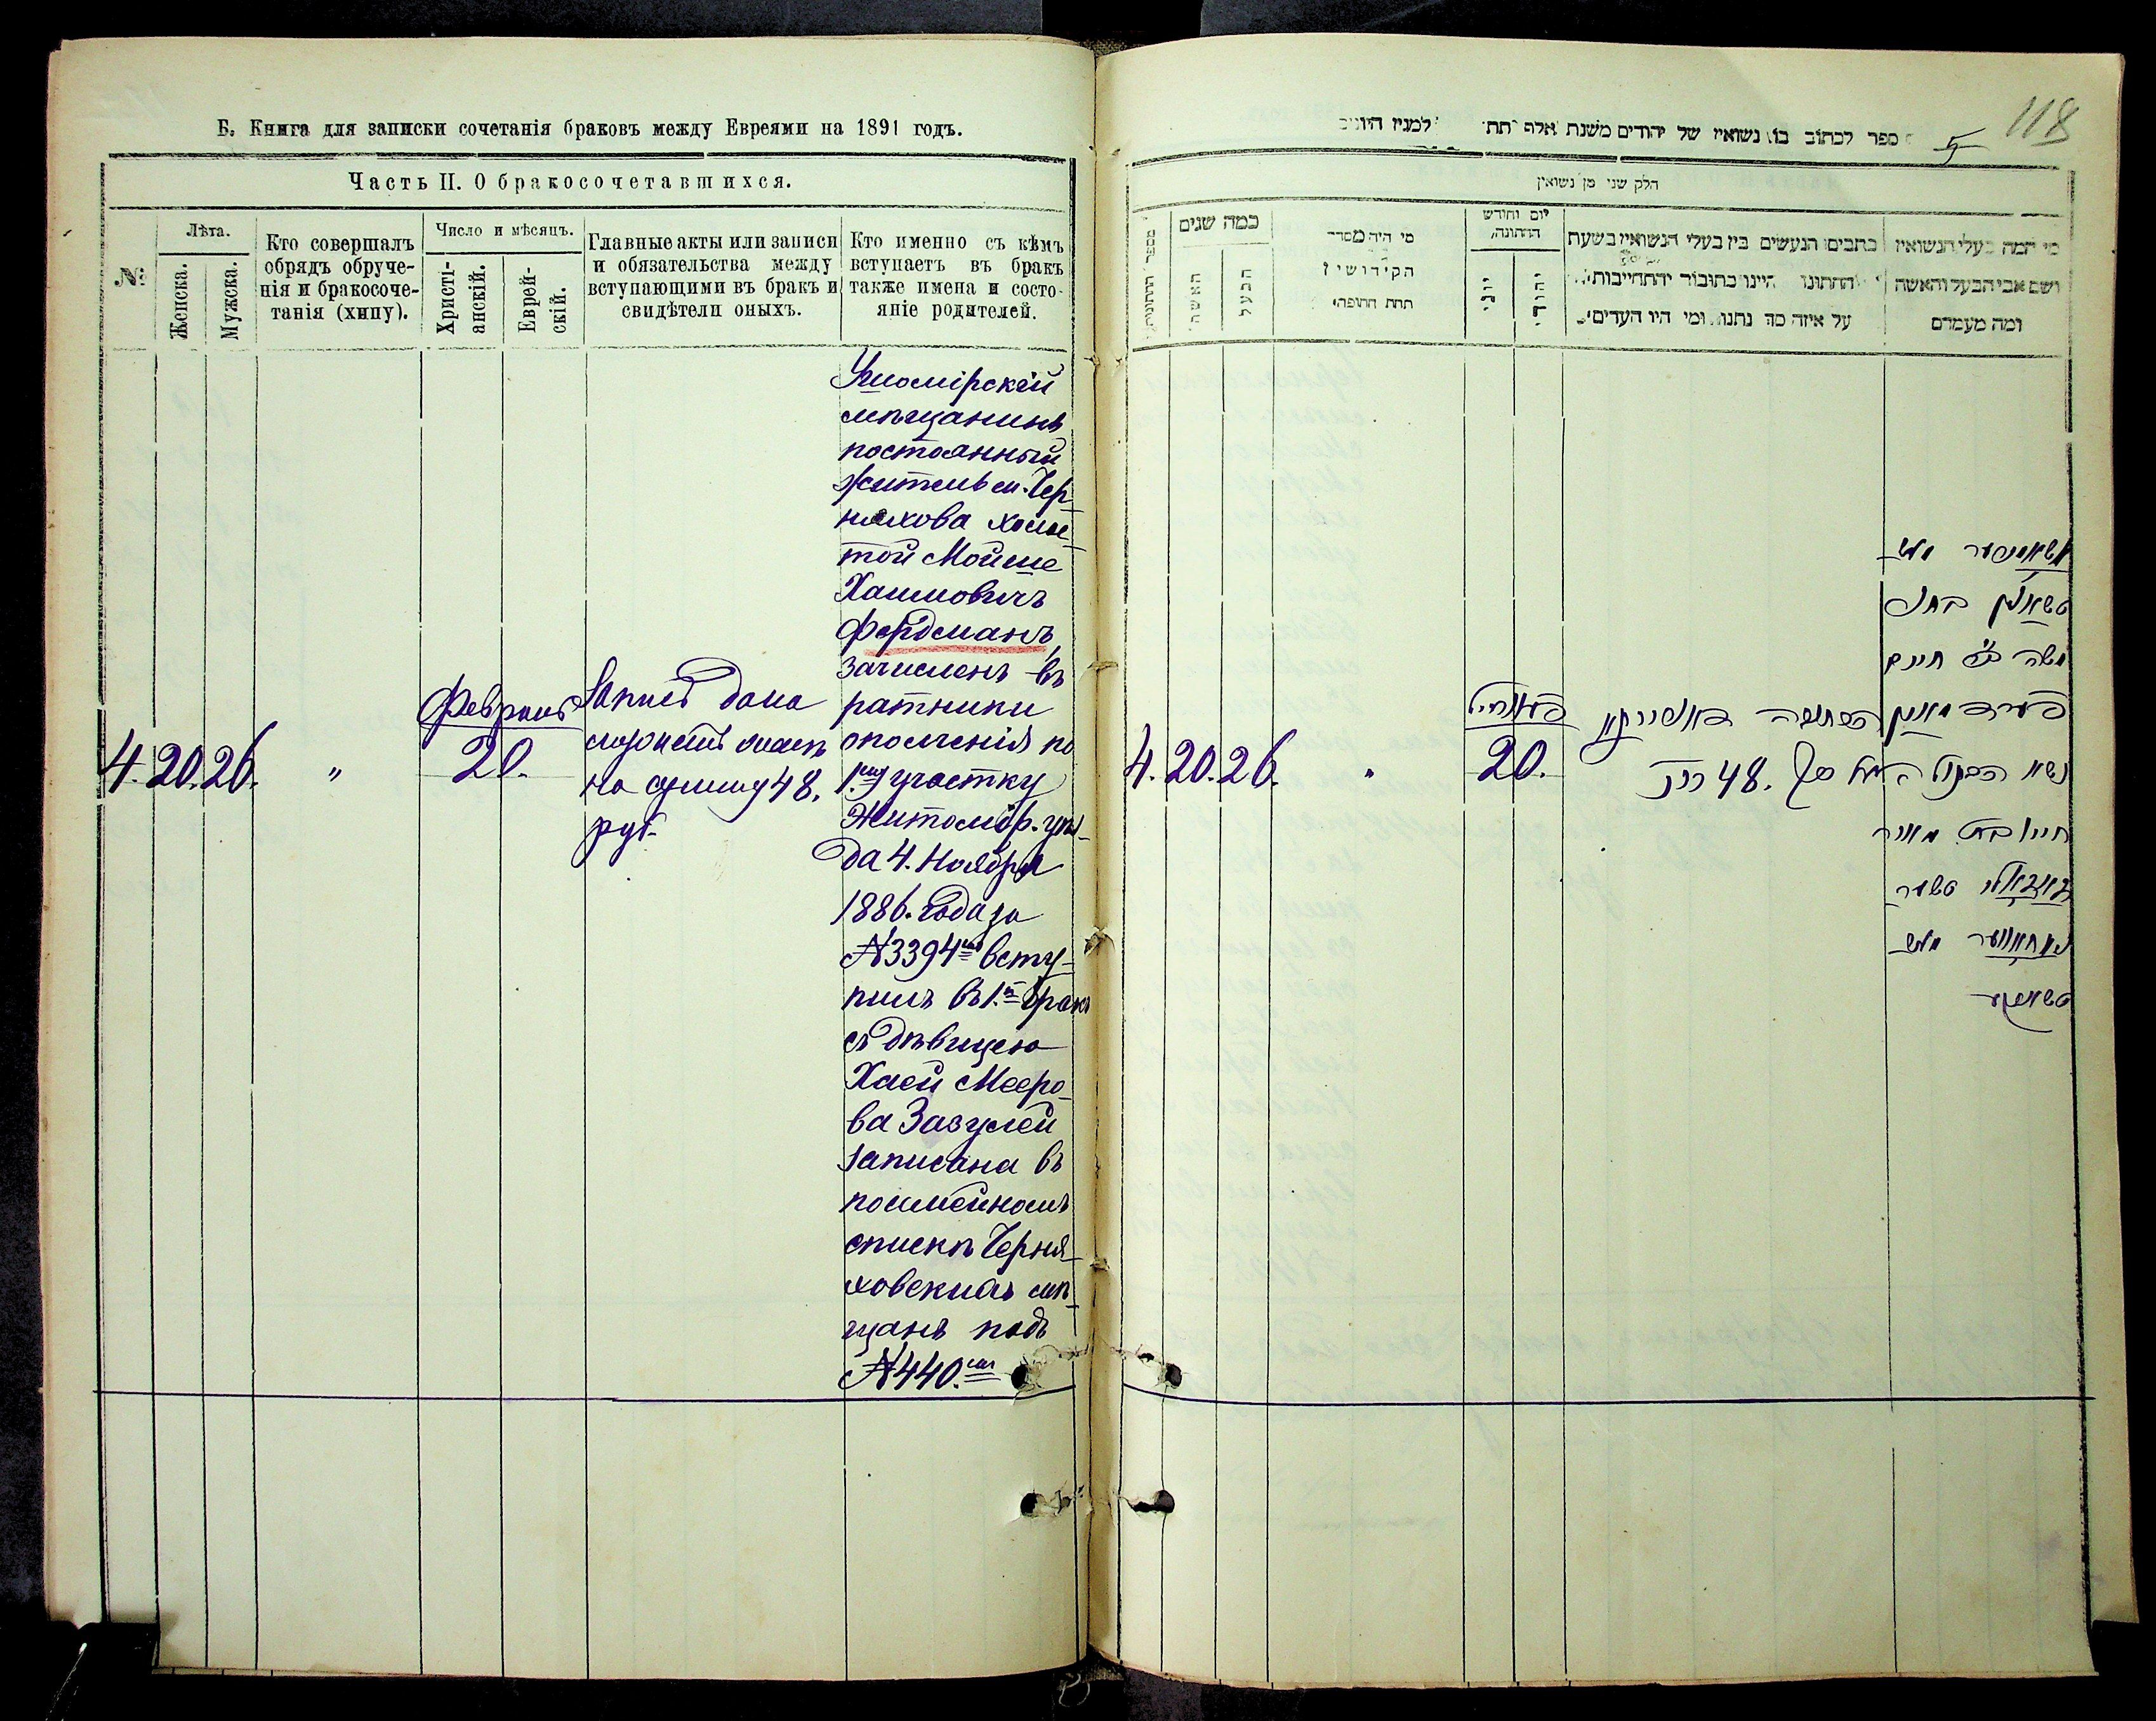 Б. Книга для записки сочетанія браковъ между Евреями на 1891 годъ.
Часть II. О бракосочетавшихся.
№
Лѣта.
Женска.
Мужска.
Кто совершалъ
обрядъ обруче-
нія и бракосоче-
танія (хипу).
Число и мѣсяцъ.
Христі-
анскій.
Еврей-
скій.
Главные акты или записи
и обязательства между
вступающими въ бракъ и
свидѣтели оныхъ.
Кто именно съ кѣмъ
вступаетъ въ бракъ
также имена и состо-
яніе родителей.
4. 20. 26. "
Февраля
20.
Запись дана
на сумму 48.
руб.
мѣщанинъ
постоянный
житель м. Чер-
няхова холос-
той Мойше
Хаимовичъ
Фердманъ,
зачисленъ въ
ратники
ополченія по
1му участку
Житомір. уѣз-
да 4. Ноября
1886. года за
№3394мъ всту-
пилъ въ 1.й бракъ
съ дѣвицею
Хаей Мееро-
ва Зазулей
записана въ
посемейномъ
спискѣ Черня-
ховскихъ мѣ-
щанъ подъ
№440.мъ
118
5
ספר לכתוב בו נשואין של יהודים משנת אלף תת למנין היונים
חלק שני מן נשואין
מספר החתונות
כמה שנים
האשה
הבעל
מי היה מסדר
הקידושין
תחת החופה
יום וחודש
החתונה
יוני
יהודי
כתבים הנעשים בין בעלי הנשואין בשעת
החתונה היינו כתובות והתחייבות
על איזה סך נתנו ומי היו העדים
מי המה בעלי הנשואין
ושם אבי הבעל והאשה
ומה מעמדם
4. 20. 26. "
20.
48
משה חיים
פערדמאן
נשא
חיי בת מאיר